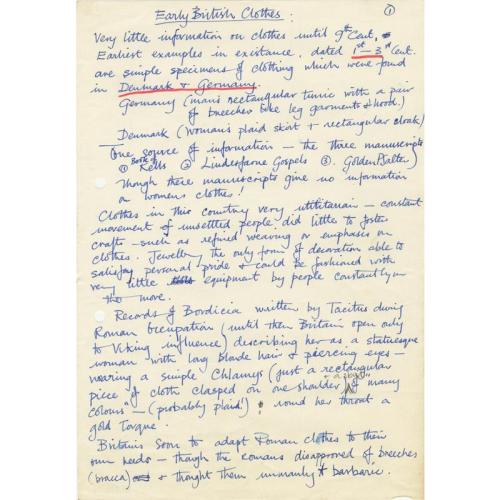 Early British Clothes :
1
Very little information on clothes until 9th Cent.
Earliest examples in existance, dated 1st – 3rd Cent.
are simple specimens of clothing which were found
in Denmark & Germany.
Germany (man's rectangular tunic with a pair
of breeches like leg garments & hood.)
Denmark (Woman's plaid skirt & rectangular cloak)
One source of information – the three manuscripts
① Book of Kells ② Lindersfarne Gospels ③ Golden Psalter)
Though these manuscripts give no information
on womens clothes!
Clothes in this country very utilitarian – constant
movement of unsettled people did little to foster
crafts – such as refined weaving or emphasis on
clothes. Jewellry the only form of decoration able to
satisfy personal pride & could be fashioned with
very little equipment by people constantly on
the move.
Records of Bordiccia written by Tacitus during
Roman Occupation (until then Britain open only
to Viking influence) describing her as a statuesque
woman with long blonde hair & piercing eyes –
wearing a simple Chlamys (just a rectangular
piece of cloth clasped on one shoulder of many
colours" – (probably plaid!) round her throat a
gold Torque.
Britains soon to adapt Roman clothes to their
own needs – though the Romans disapproved of breeches
(bracca) & thought them unmanly & barbaric.